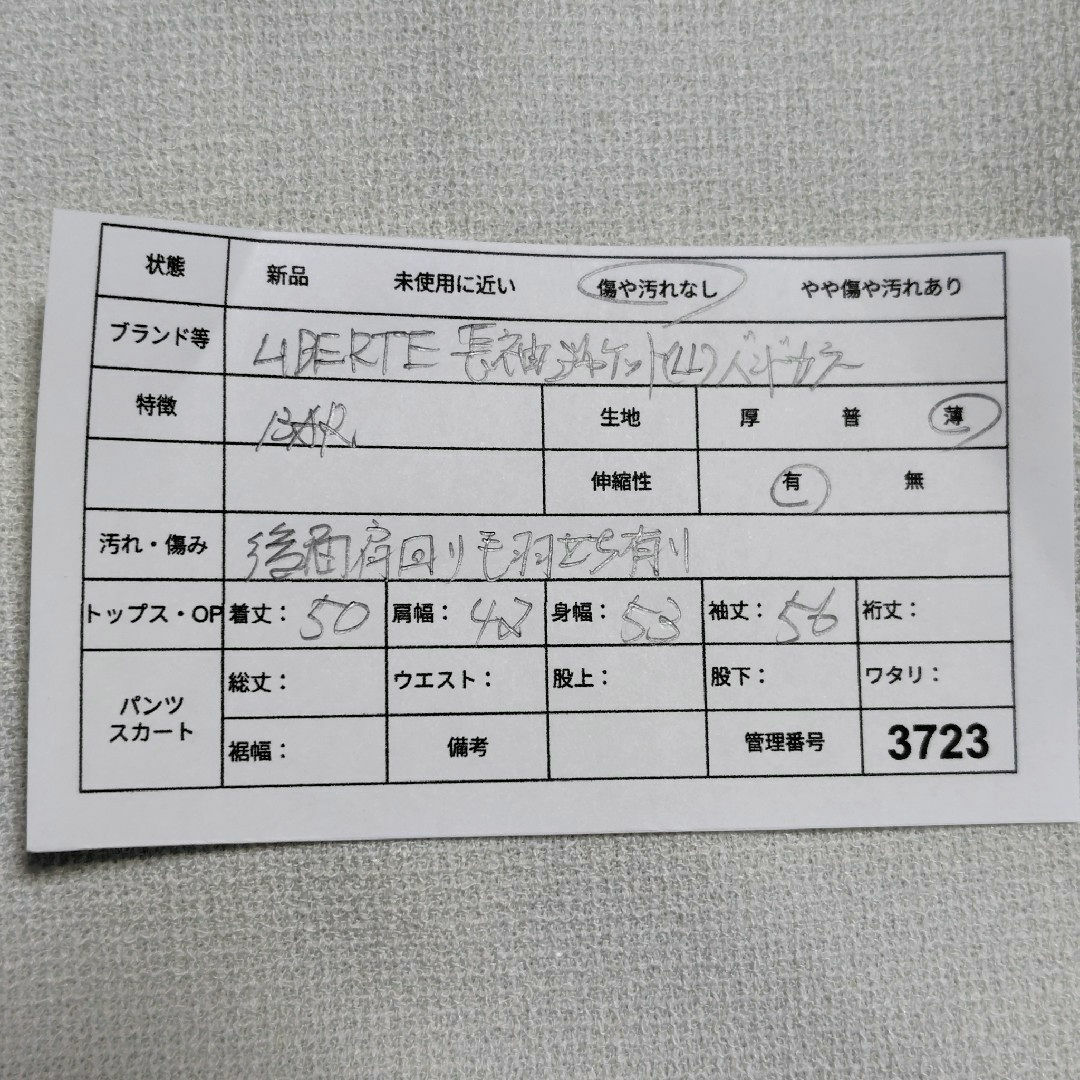 状態 新品 未使用に近い 傷や汚れなし やや傷や汚れあり
ブランド等 LIBERTE 長袖ジャケット(LL) バンドカラー
特徴 生地 厚 普 薄
伸縮性 有 無
汚れ・傷み 後面肩回り毛羽立ち有り
トップス・OP 着丈: 50 肩幅: 42 身幅: 53 袖丈: 56 裄丈:
パンツ 総丈: ウエスト: 股上: 股下: ワタリ:
スカート 裾幅: 備考 管理番号 3723